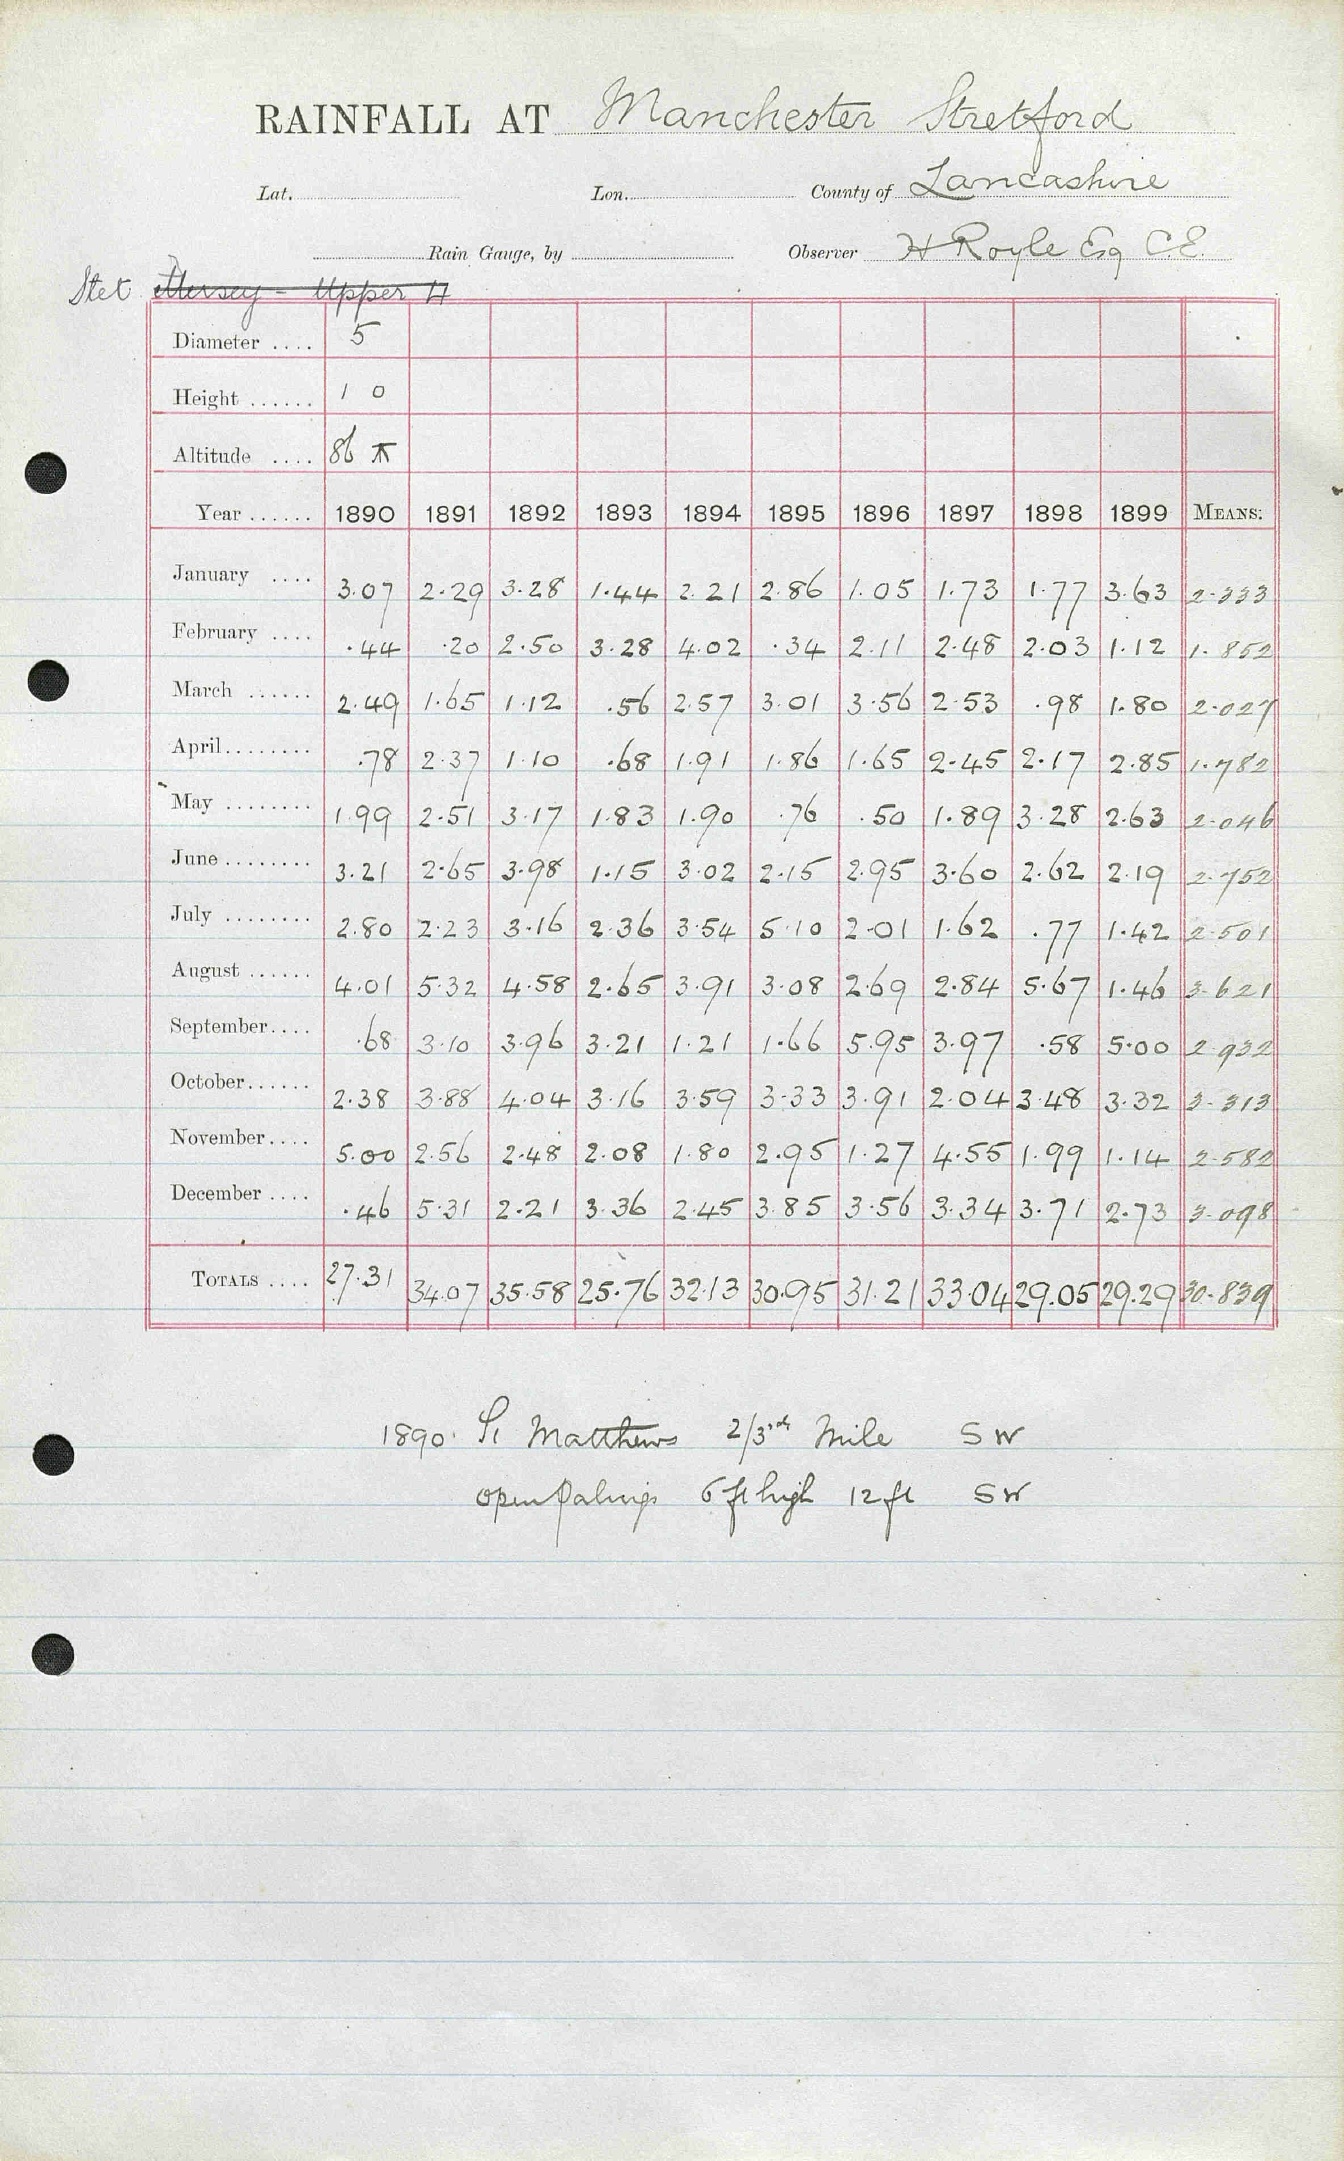 RAINFALL AT Manchester Stretford
Lat. Lon. County of Lancashire
Rain Gauge, by Observer H Royle Esq C.E.
Stet Mersey - Upper H
Diameter .... 5
Height ...... 1 0
Altitude .... 86
Year ...... 1890 1891 1892 1893 1894 1895 1896 1897 1898 1899 MEANS:
January .... 3.07 2.29 3.28 1.44 2.21 2.86 1.05 1.73 1.77 3.63 2.333
February .... .44 .20 2.50 3.28 4.02 .34 2.11 2.48 2.03 1.12 1.852
March ...... 2.49 1.65 1.12 .56 2.57 3.01 3.56 2.53 .98 1.80 2.027
April........ .78 2.37 1.10 .68 1.91 1.86 1.65 2.45 2.17 2.85 1.782
May ........ 1.99 2.51 3.17 1.83 1.90 .76 .50 1.89 3.28 2.63 2.046
June........ 3.21 2.65 3.98 1.15 3.02 2.15 2.95 3.60 2.62 2.19 2.752
July ........ 2.80 2.23 3.16 2.36 3.54 5.10 2.01 1.62 .77 1.42 2.501
August ...... 4.01 5.32 4.58 2.65 3.91 3.08 2.69 2.84 5.67 1.46 3.621
September.... .68 3.10 3.96 3.21 1.21 1.66 5.95 3.97 .58 5.00 2.932
October...... 2.38 3.88 4.04 3.16 3.59 3.33 3.91 2.04 3.48 3.32 3.313
November.... 5.00 2.56 2.48 2.08 1.80 2.95 1.27 4.55 1.99 1.14 2.582
December .... .46 5.31 2.21 3.36 2.45 3.85 3.56 3.34 3.71 2.73 3.098
TOTALS .... 27.31 34.07 35.58 25.76 32.13 30.95 31.21 33.04 29.05 29.29 30.839
1890. St Matthews 2/3rds Mile SW
open palings 6 ft high 12 ft SW